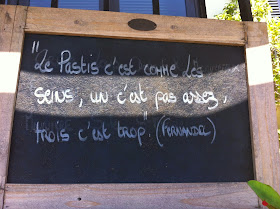 "Le Pastis c'est comme les
seins, un c'est pas assez,
trois c'est trop". (Fernandel)